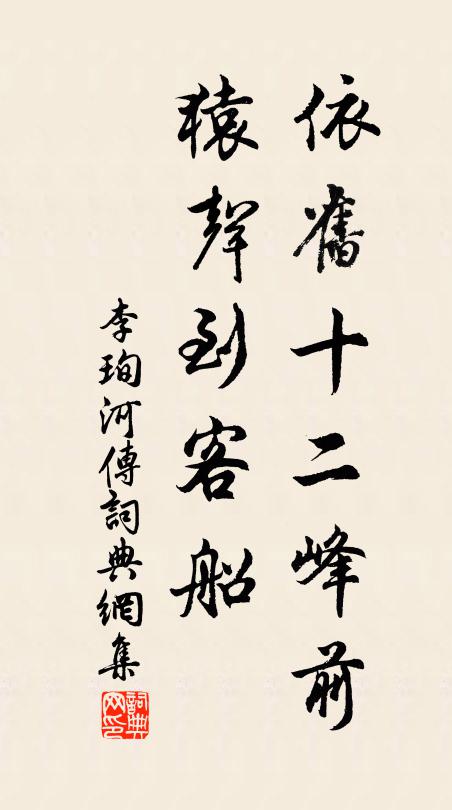 依舊十二峰前
猿聲到客船
李珣河傳詞典網集
詞典網印